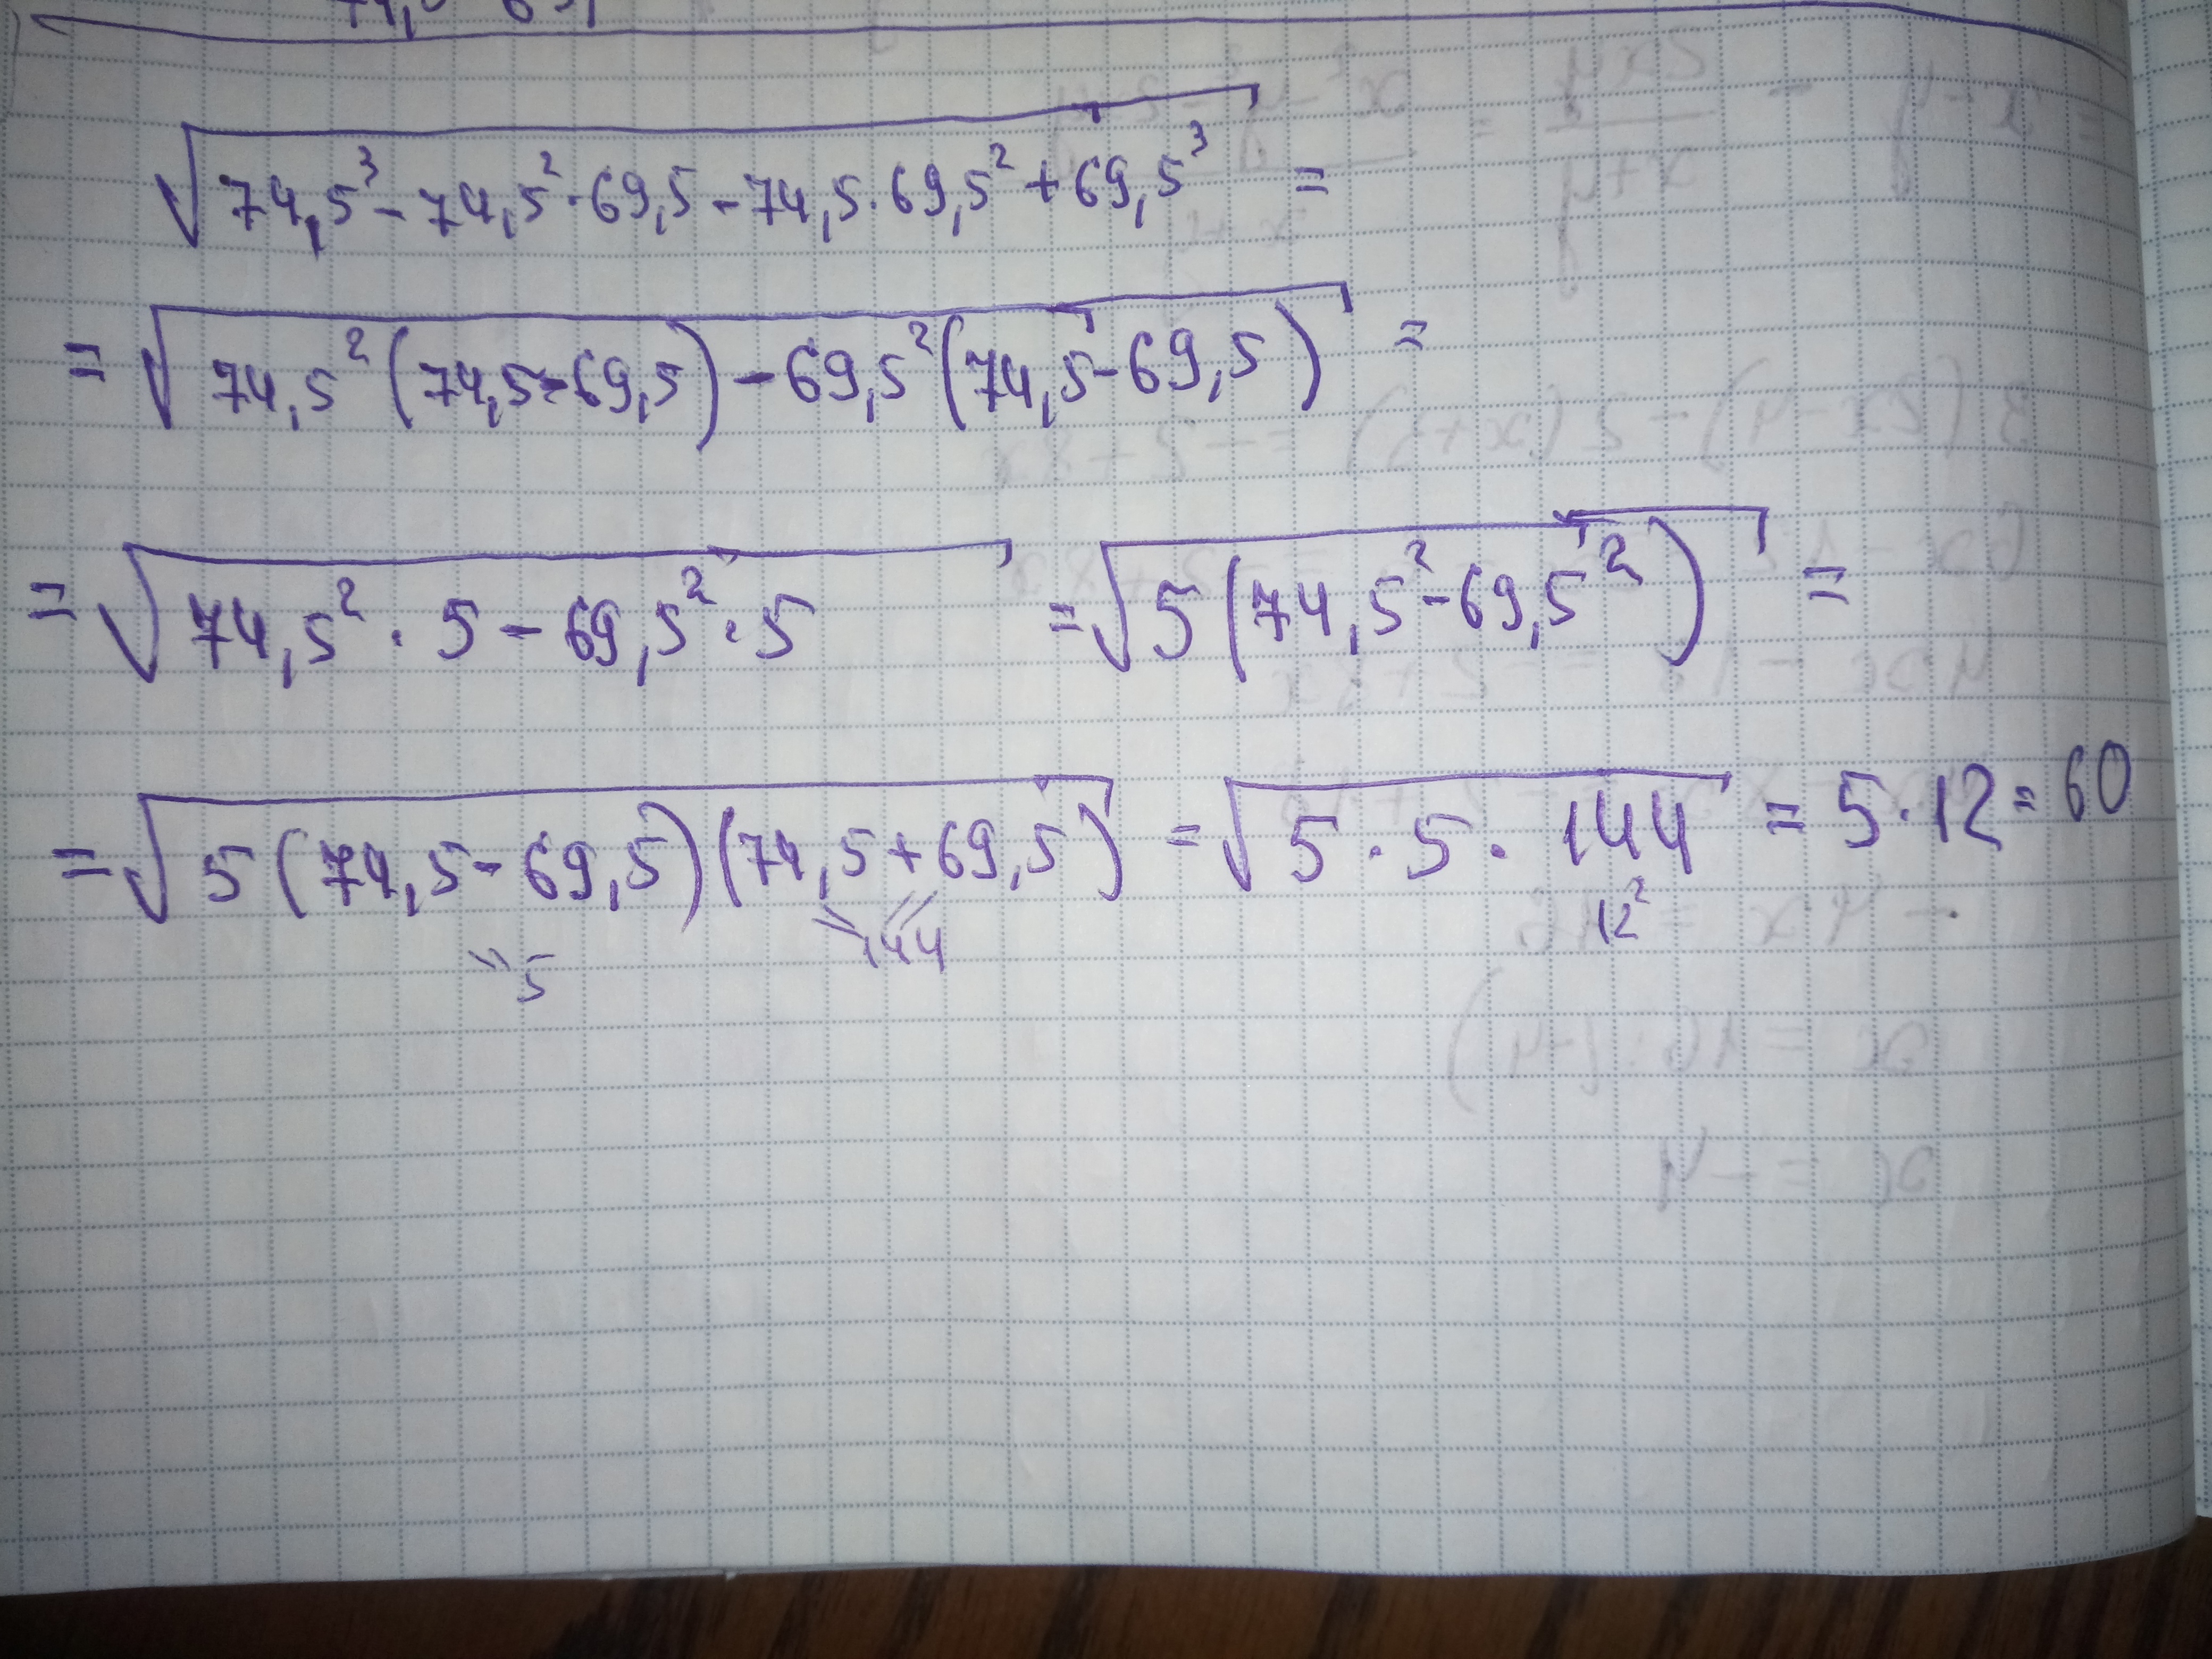 √(74,5³ - 74,5² · 69,5 - 74,5 · 69,5² + 69,5³) =
= √(74,5² (74,5 - 69,5) - 69,5² (74,5 - 69,5)) =
= √(74,5² · 5 - 69,5² · 5) = √(5 (74,5² - 69,5²)) =
= √(5 (74,5 - 69,5) (74,5 + 69,5)) = √(5 · 5 · 144) = 5 · 12 = 60
"5 144 12²